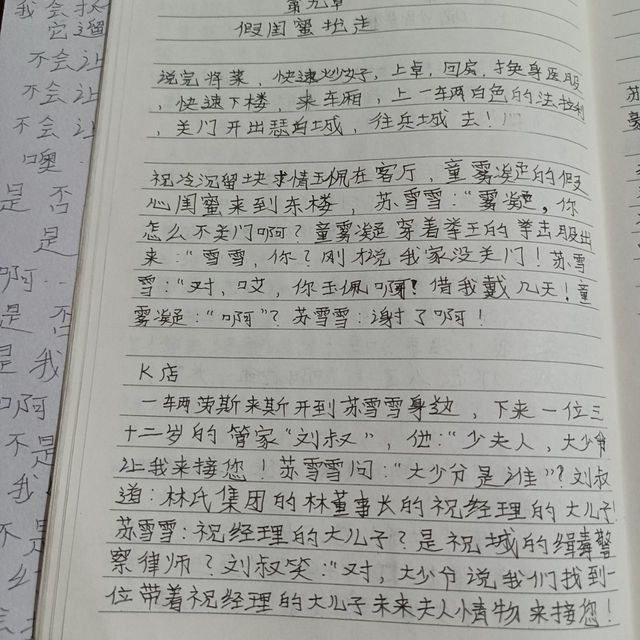 第九章
假闺蜜拐走
说完将菜，快速炒好，上桌，回房，换身医服
，快速下楼，来车厢，上一车两白色的法拉利
，关门开出瑟白城，往兵城去！
祝冷沉留块求情玉佩在客厅，童雾凝的假
心闺蜜来到东楼，苏雪雪：“雾凝，你
怎么不关门啊？童雾凝穿着拳王的拳击服出
来：“雪雪，你？刚才说我家没关门！苏雪
雪：“对，哎，你玉佩啊！借我戴几天！童
雾凝：“啊”？苏雪雪：谢了啊！
K店
一车两劳斯来斯开到苏雪雪身边，下来一位三
十二岁的管家“刘叔”，他：“少夫人，大少爷
让我来接您！苏雪雪问：“大少爷是谁”？刘叔
道：林氏集团的林董事长的祝经理的大儿子！
苏雪雪：祝经理的大儿子？是祝城的缉毒警
察律师？刘叔笑：“对，大少爷说我们找到一
位带着祝经理的大儿子未来夫人情物来接您！
我会
它遛
不会让
不会让
不会让
噢
是 否
是
啊
是 否
是 我
啊
不是
我
不是